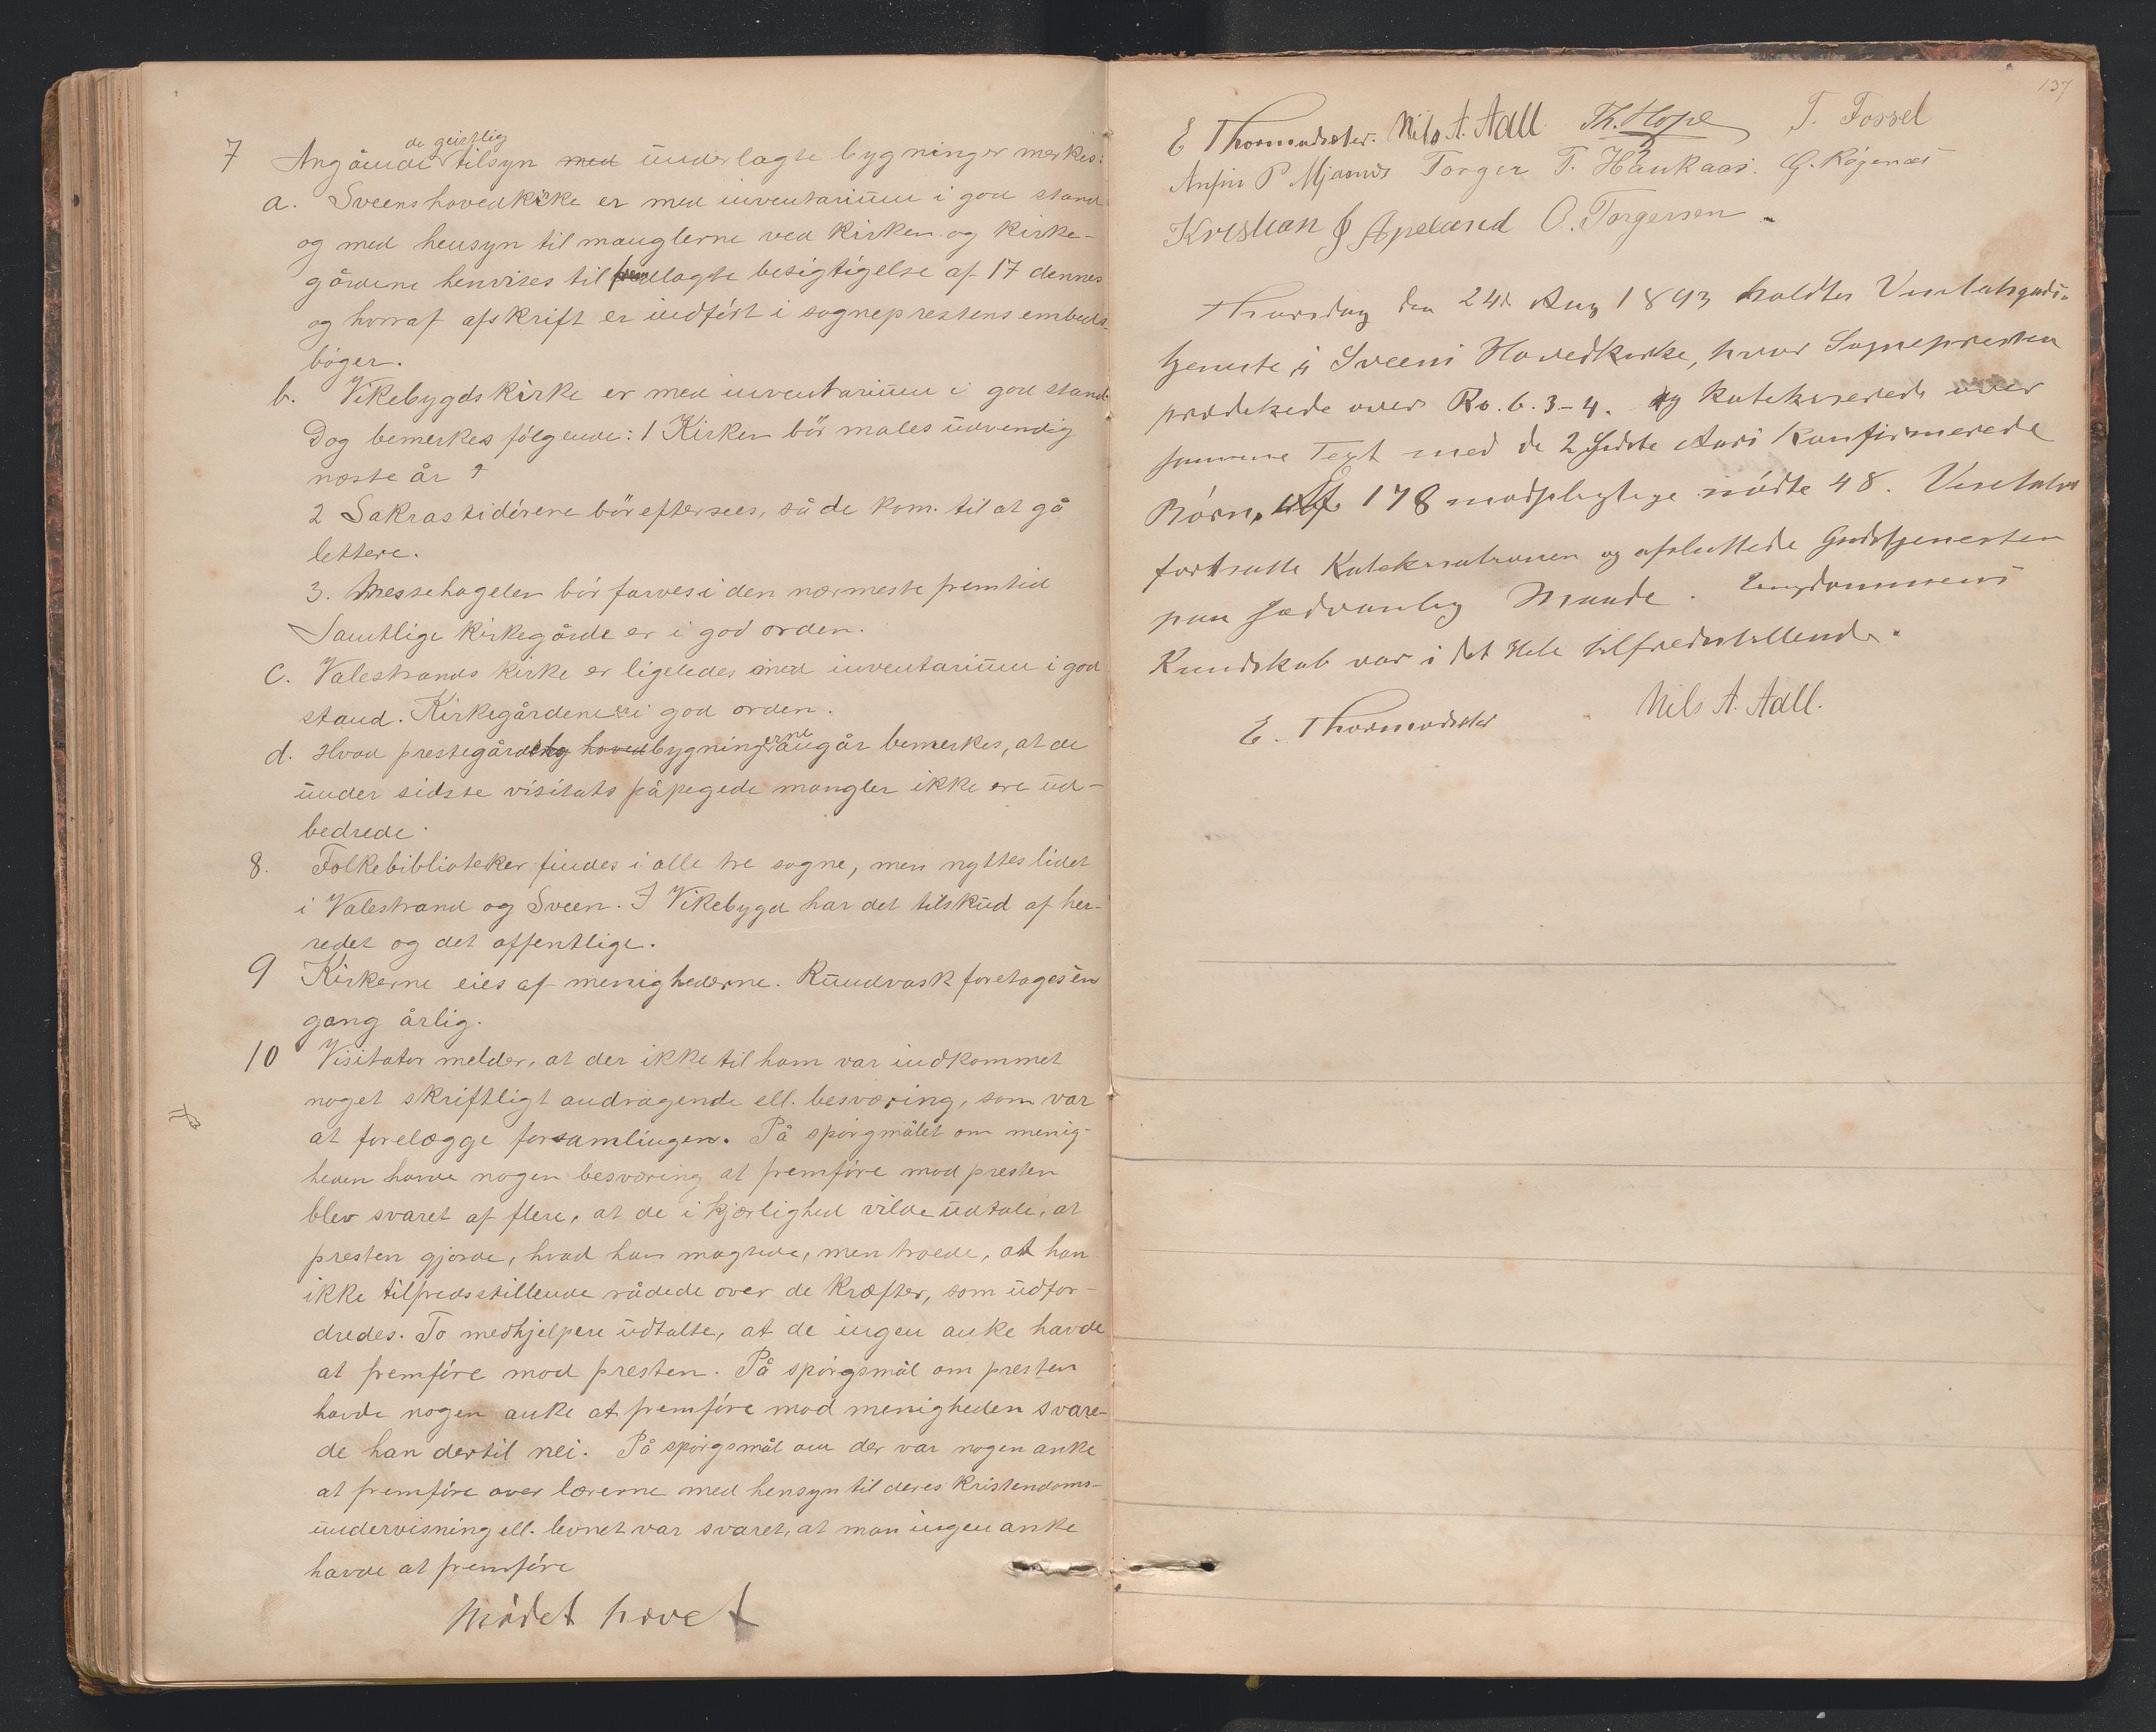 de geistlig
7 Angående tilsyn med underlagte bygninger merkes:
a. Sveens hovedkirke er med inventarium i god stand
og med hensyn til manglerne ved kirken og kirke-
gårdene henvises til fremlagte besigtigelse af 17 dennes
og hvoraf afskrift er indført i sogneprestens embeds-
bøger.
b. Vikebygds kirke er med inventarium i god stand.
Dog bemerkes følgende: 1 Kirken bør males udvendig
næste år
2 Sakrastidørene bør eftersees, så de kom. til at gå
lettere.
3. Messehagelen bør farves i den nærmeste fremtid
Samtlige kirkegårde er i god orden.
C. Valestrands kirke er ligeledes med inventarium i god
stand. Kirkegårdene er i god orden.
d. Hvad prestegårdens hovedbygningerne angår bemerkes, at de
under sidste visitats påpegede mangler ikke ere ud-
bedrede.
8. Folkebiblioteker findes i alle tre sogne, men nyttes lidet
i Valestrand og Sveen. I Vikebygd har det tilskud af her-
redet og det offentlige.
9 Kirkerne eies af menighederne. Rundvask foretages én
gang årlig.
10 Visitator melder, at der ikke til ham var indkommet
noget skriftligt andragende ell. besværing, som var
at forelægge forsamlingen. På spørgmålet om menig-
heden havde nogen besværing at fremføre mod presten
blev svaret af flere, at de i kjærlighed vilde udtale, at
presten gjorde, hvad han magtede, men troede, at han
ikke tilfredsstillende rådede over de kræfter, som udfor-
dredes. To medhjelpere udtalte, at de ingen anke havde
at fremføre mod presten. På spørgsmål om presten
havde nogen anke at fremføre mod menigheden svare-
de han dertil nei. På spørgsmål om der var nogen anke
at fremføre over lærerne med hensyn til deres kristendoms-
undervisning ell. levnet var svaret, at man ingen anke
havde at fremføre
Mødet hævet
137
E Thormodsæter. Nils A. Aall. Th. Hope T. Fossel
Anfin P Mjaanes Torger T. Haukaas. G. Røgenæs
Kristian J Apeland O. Torgersen
Thorsdag den 24de Aug 1893 holdtes Visitatsguds-
tjeneste i Sveens Hovedkirke, hvor Sognepresten
prædikede over Ro. 6. 3-4. og katekiserede over
samme Text med de 2 sidste Aars Konfirmerede
Børn. Af 178 mødepligtige mødte 48. Visitator
fortsatte Katekisationen og afsluttede Gudstjenesten
paa sædvanlig Maade. Ungdommens
Kundskab var i det Hele tilfredsstillende.
E. Thormodsæter Nils A. Aall.